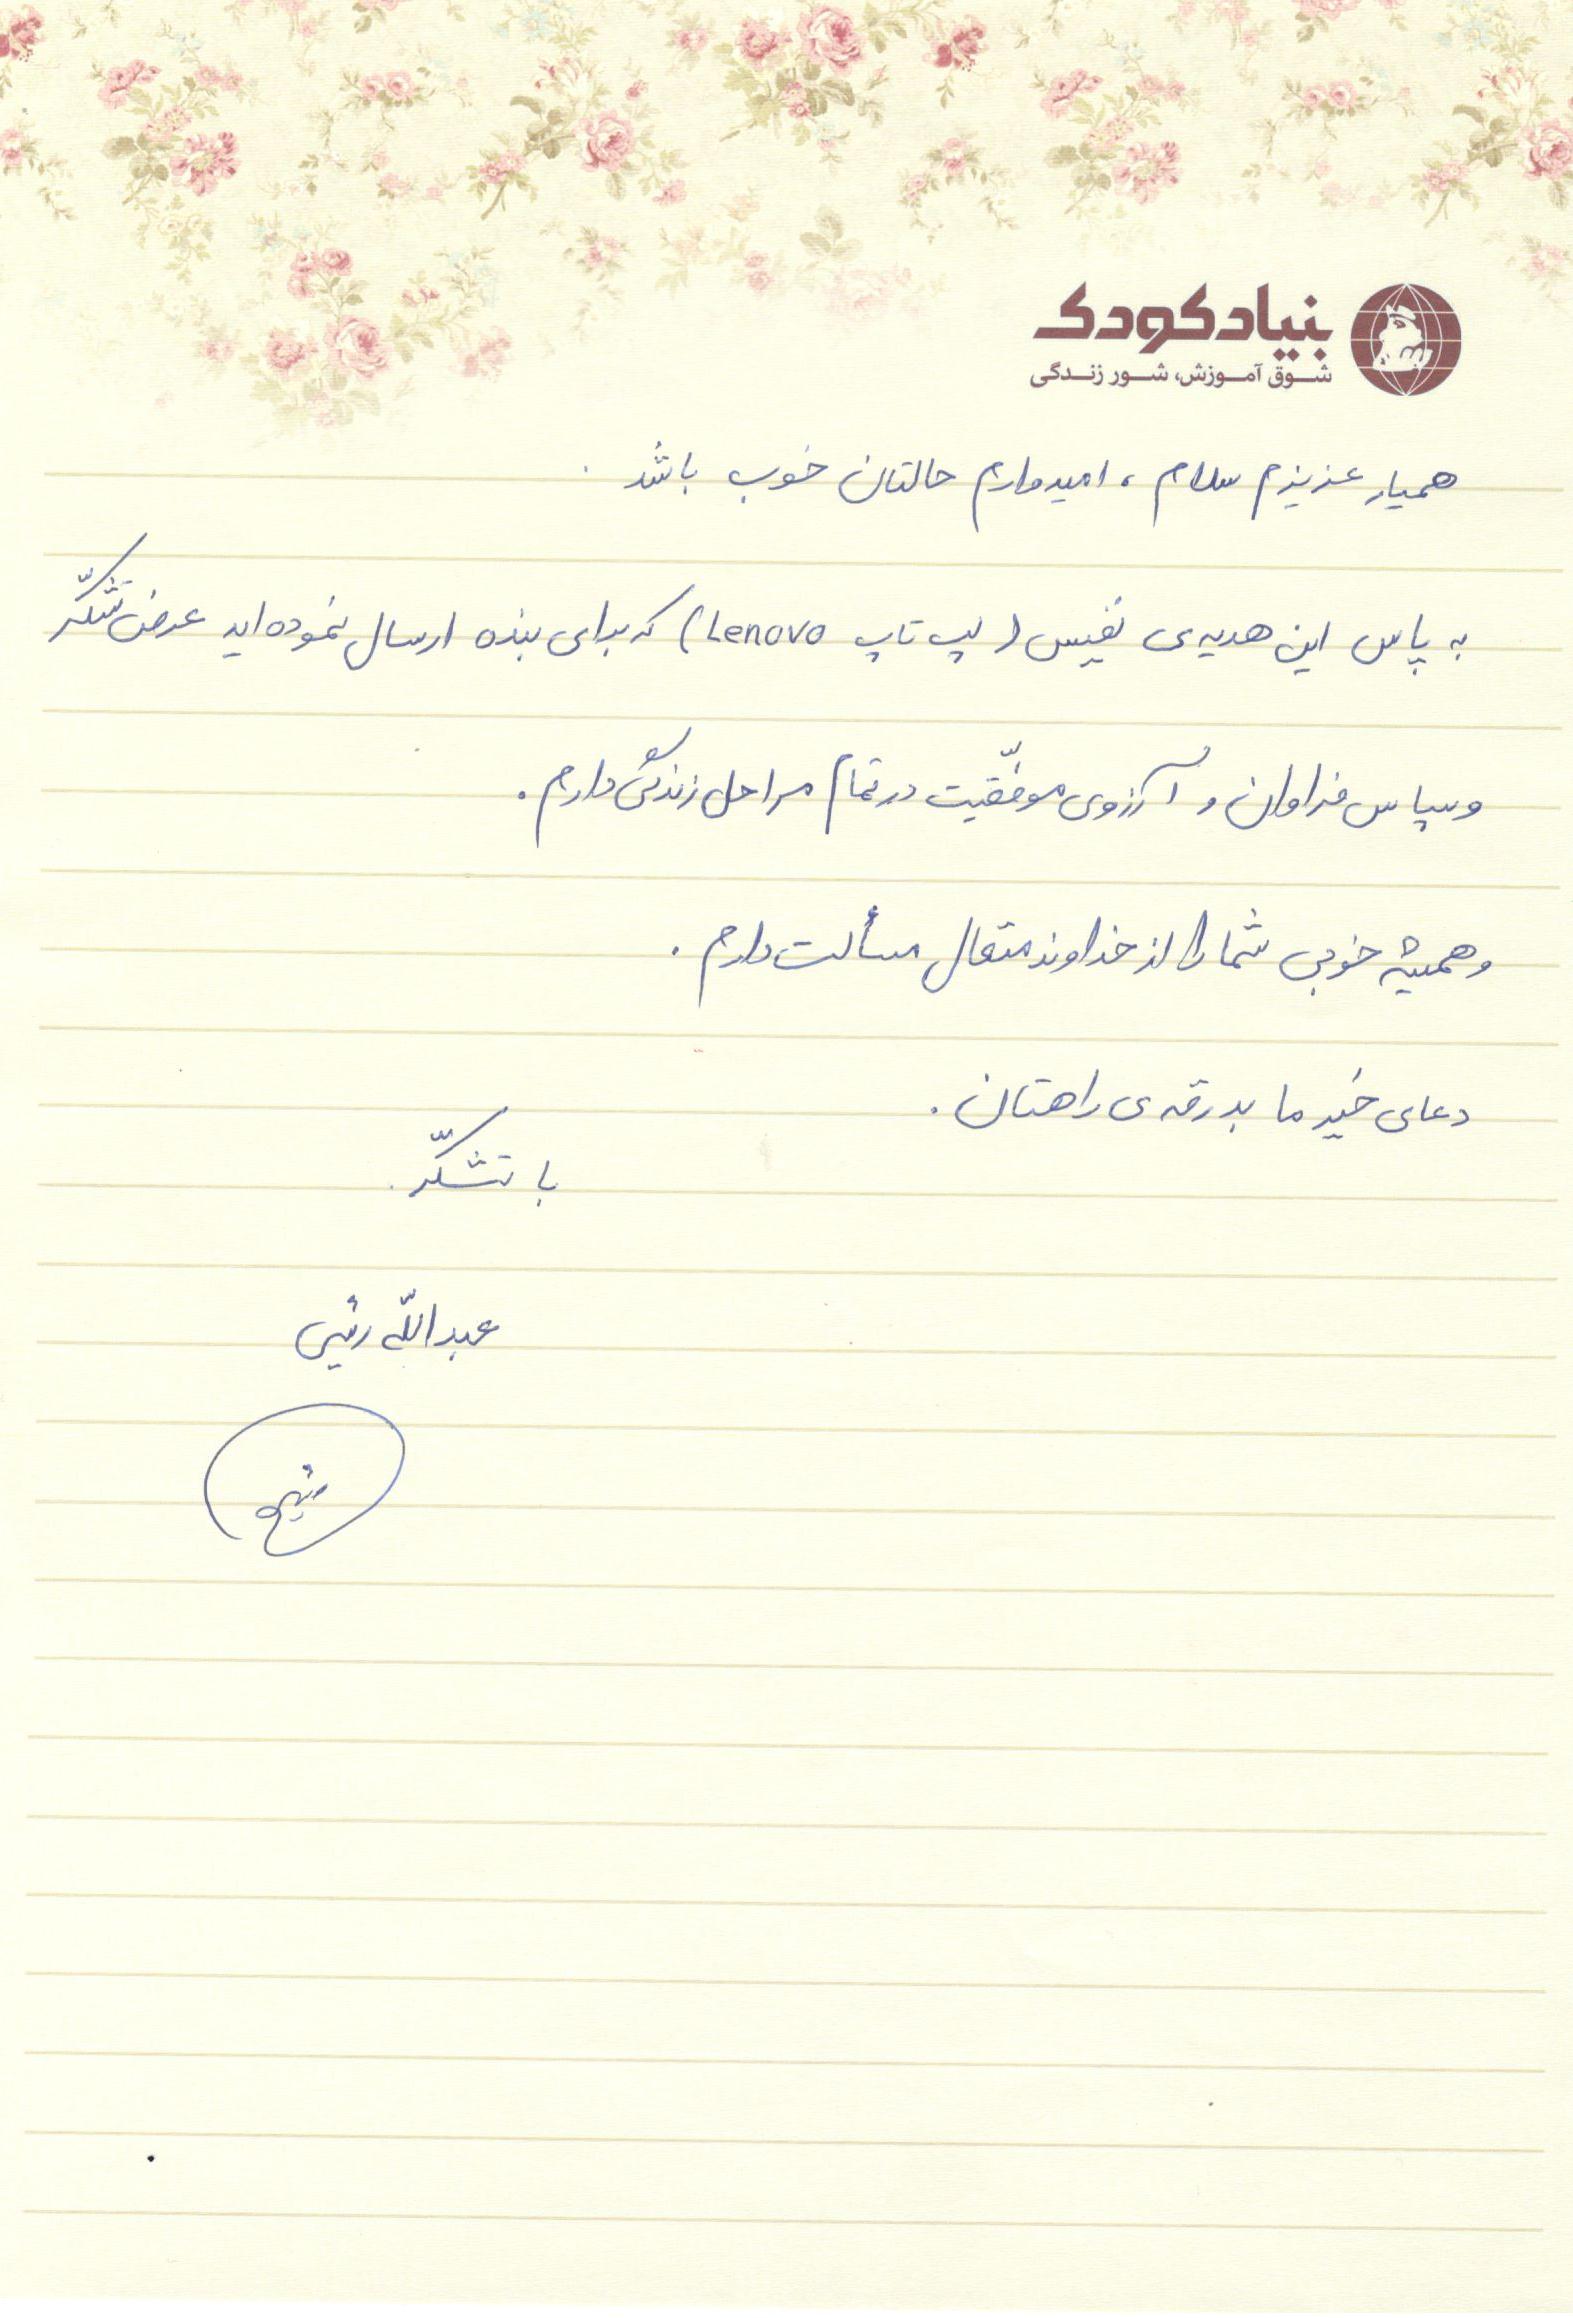 بنیادکودک
شوق آموزش، شور زندگی
همیار عزیزم سلام، امیدوارم حالتان خوب باشد.
به پاس این هدیه‌ی نفیس (لپ تاپ Lenovo) که برای بنده ارسال نموده‌اید عرض تشکّر
و سپاس فراوان و آرزوی موفّقیت در تمام مراحل زندگی دارم.
و همیشه خوبی شما را از خداوند متعال مسألت دارم.
دعای خیر ما بدرقه‌ی راهتان.
با تشکّر.
عبداللّه رئیسی